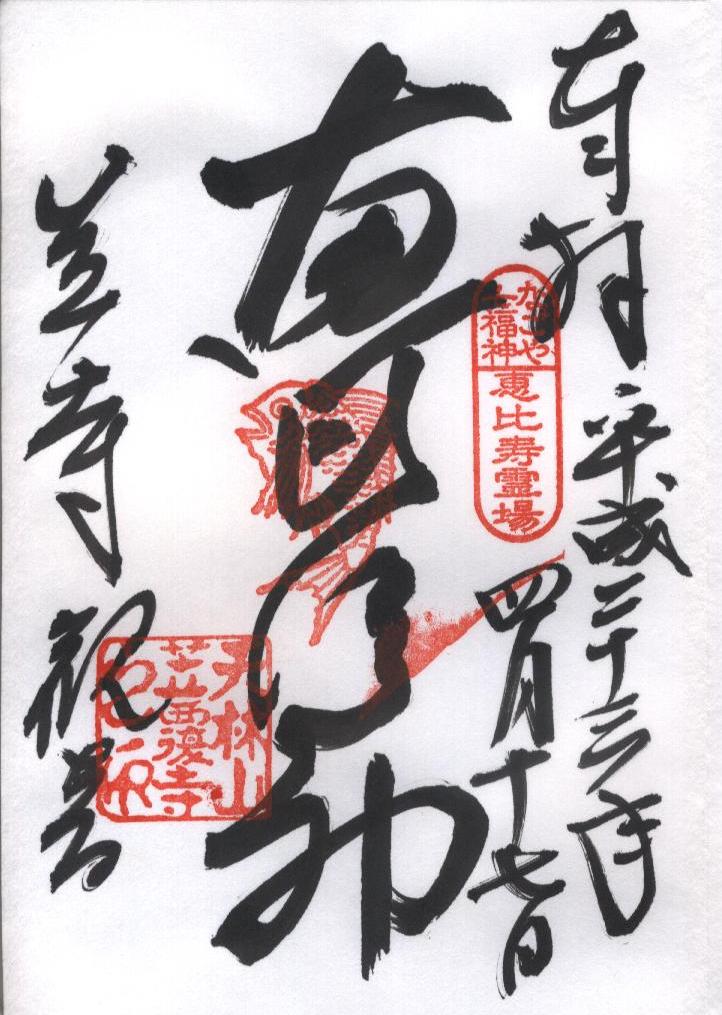 奉拝
平成二十三年
四月十七日
なごや
七福神
恵比寿霊場
恵比須神
笠寺観音
天林山
笠覆寺
之印